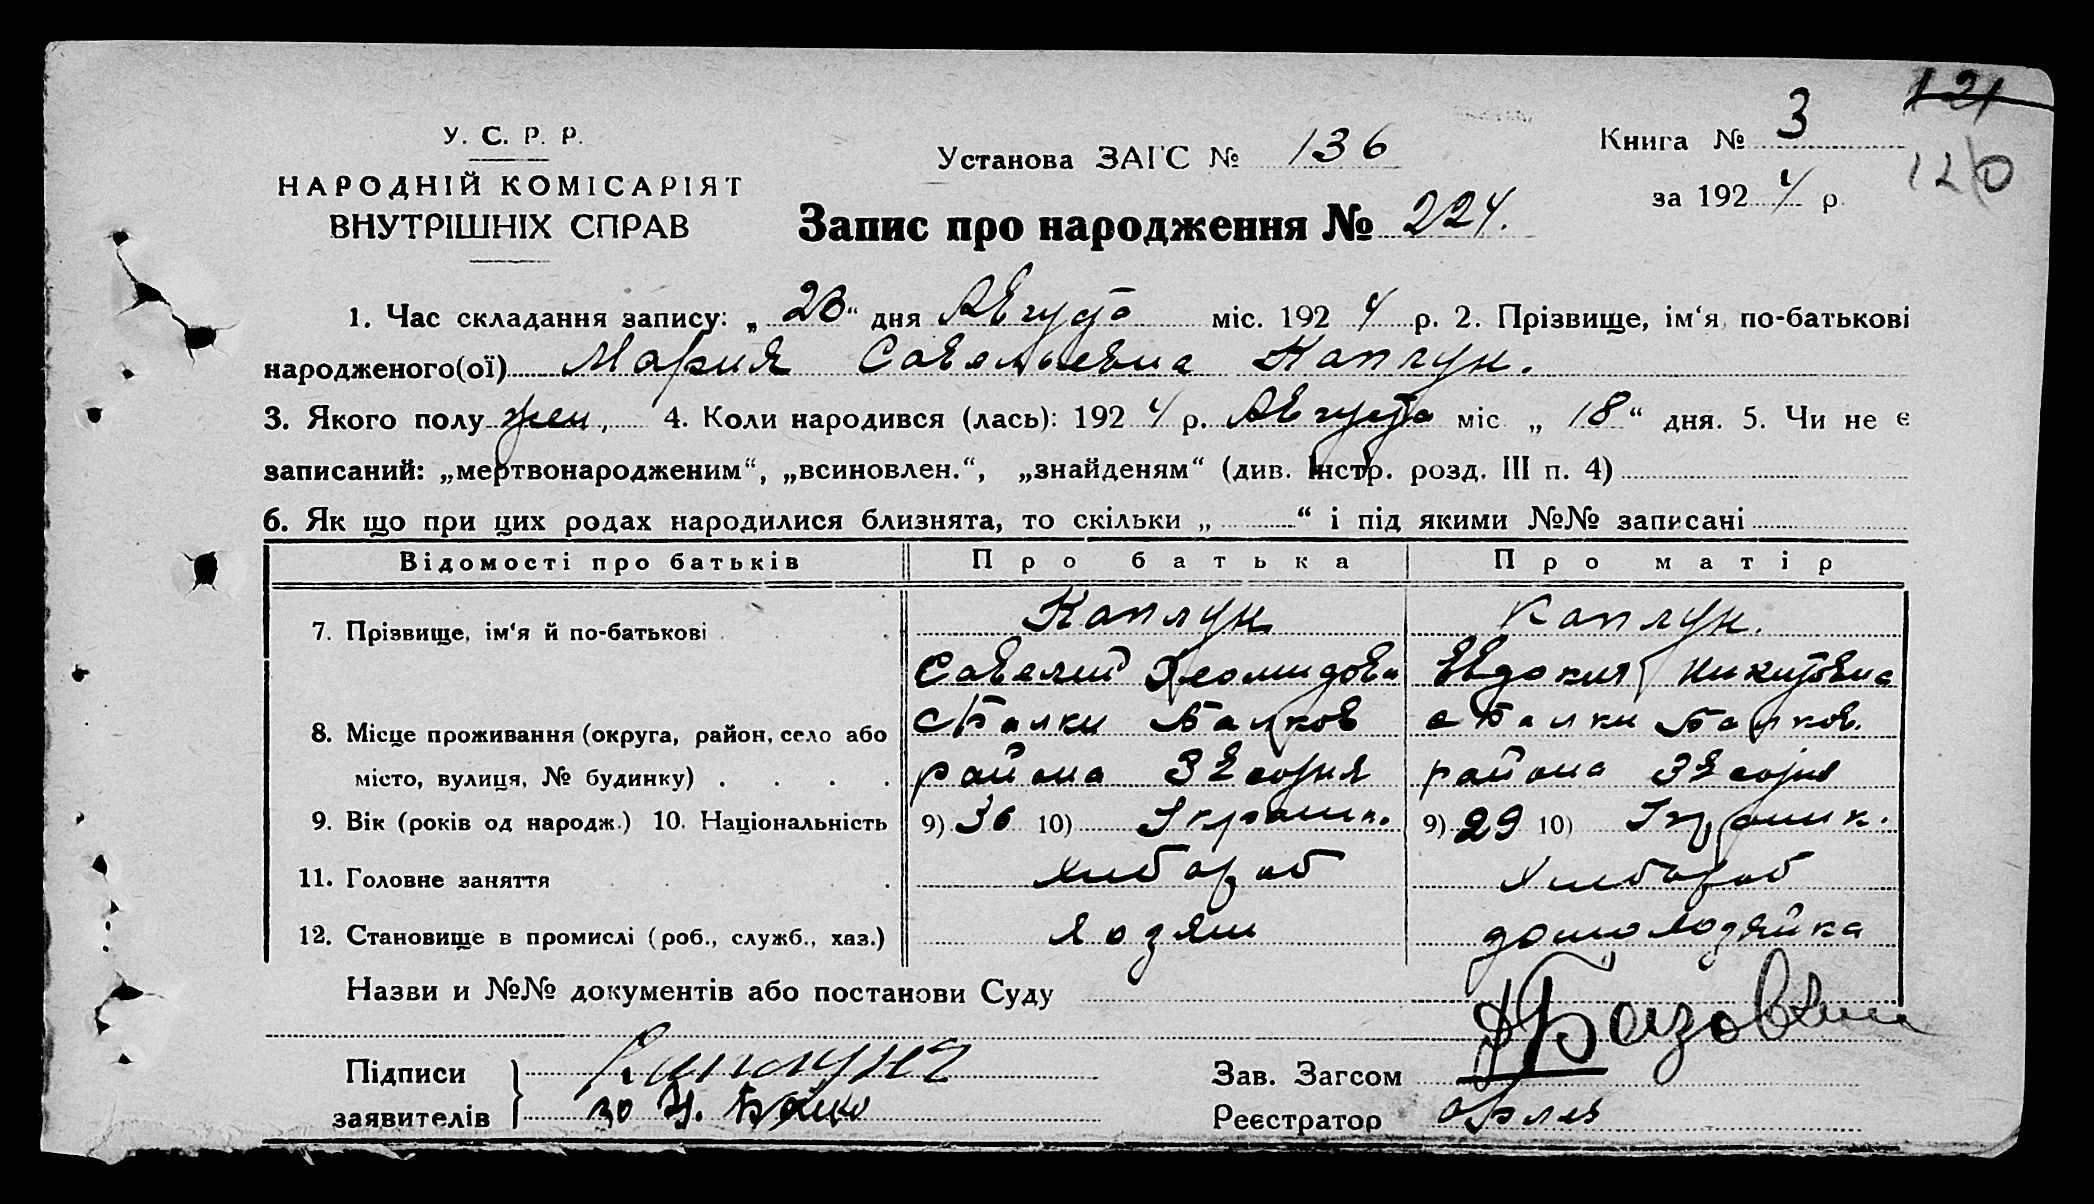 121
У. С. Р. Р.
НАРОДНІЙ КОМІСАРІЯТ
ВНУТРІШНІХ СПРАВ
Установа ЗАГС № 136
Книга № 3
120
за 1924 р.
Запис про народження № 224.
1. Час складання запису: „ 23 “ дня Августа міс. 1924 р. 2. Прізвище, ім‘я, по-батькові
народженого(ої) Мария Савельевна Каплун.
3. Якого полу жен, 4. Коли народився (лась): 1924 р. Августа міс. „ 18 “ дня. 5. Чи не є
записаний: „мертвонародженим“, „всиновлен.“, „знайденям“ (див. Інстр. розд. III п. 4)
6. Як що при цих родах народилися близнята, то скільки „ “ і під якими №№ записані
Відомості про батьків Про батька Про матір
7. Прізвище, ім‘я й по-батькові Каплун Каплун.
Савелий Евдокия Никитовна
8. Місце проживання (округа, район, село або с Балки Балков с Балки Балков.
місто, вулиця, № будинку) района района
9. Вік (років од народж.) 10. Національність 9) 36 10) Украин. 9) 29 10) Украин.
11. Головне заняття хлебороб хлебороб
12. Становище в промислі (роб., служб., хаз.) хозяин домохозяйка
Назви и №№ документів або постанови Суду
Підписи заявителів Каплуна
Зав. Загсом
Реєстратор